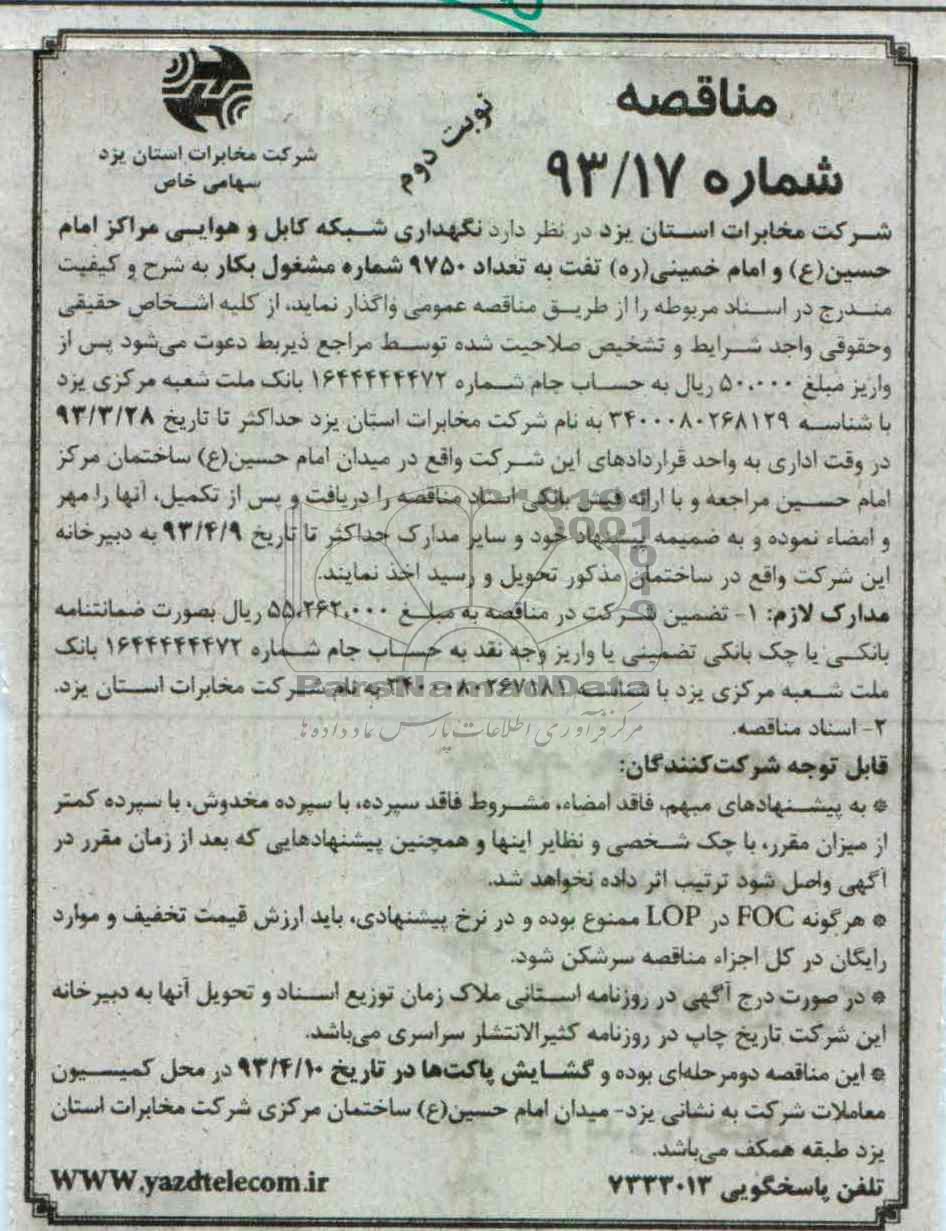 مناقصه
شماره ۹۳/۱۷
نوبت دوم
شرکت مخابرات استان یزد
سهامی خاص
شرکت مخابرات استان یزد در نظر دارد نگهداری شبکه کابل و هوایی مراکز امام
حسین(ع) و امام خمینی(ره) تفت به تعداد ۹۷۵۰ شماره مشغول بکار به شرح و کیفیت
مندرج در اسناد مربوطه را از طریق مناقصه عمومی واگذار نماید، از کلیه اشخاص حقیقی
وحقوقی واجد شرایط و تشخیص صلاحیت شده توسط مراجع ذیربط دعوت می‌شود پس از
واریز مبلغ ۵۰،۰۰۰ ریال به حساب جام شماره ۱۶۴۴۴۴۴۴۷۲ بانک ملت شعبه مرکزی یزد
با شناسه ۳۴۰۰۰۸۰۲۶۸۱۲۹ به نام شرکت مخابرات استان یزد حداکثر تا تاریخ ۹۳/۳/۲۸
در وقت اداری به واحد قراردادهای این شرکت واقع در میدان امام حسین(ع) ساختمان مرکز
امام حسین مراجعه و با ارائه فیش بانکی اسناد مناقصه را دریافت و پس از تکمیل، آنها را مهر
و امضاء نموده و به ضمیمه پیشنهاد خود و سایر مدارک حداکثر تا تاریخ ۹۳/۴/۹ به دبیرخانه
این شرکت واقع در ساختمان مذکور تحویل و رسید اخذ نمایند.
مدارک لازم: ۱- تضمین شرکت در مناقصه به مبلغ ۵۵،۲۶۲،۰۰۰ ریال بصورت ضمانتنامه
بانکی یا چک بانکی تضمینی یا واریز وجه نقد به حساب جام شماره ۱۶۴۴۴۴۴۴۷۲ بانک
ملت شعبه مرکزی یزد با شناسه ۳۴۰۰۰۸۰۲۶۷۱۸۱ به نام شرکت مخابرات استان یزد.
ParsNamadData
۲- اسناد مناقصه.
مرکز فرآوری اطلاعات پارس نماد داده ها
قابل توجه شرکت‌کنندگان:
* به پیشنهادهای مبهم، فاقد امضاء، مشروط فاقد سپرده، با سپرده مخدوش، با سپرده کمتر
از میزان مقرر، با چک شخصی و نظایر اینها و همچنین پیشنهادهایی که بعد از زمان مقرر در
آگهی واصل شود ترتیب اثر داده نخواهد شد.
* هرگونه FOC در LOP ممنوع بوده و در نرخ پیشنهادی، باید ارزش قیمت تخفیف و موارد
رایگان در کل اجزاء مناقصه سرشکن شود.
* در صورت درج آگهی در روزنامه استانی ملاک زمان توزیع اسناد و تحویل آنها به دبیرخانه
این شرکت تاریخ چاپ در روزنامه کثیرالانتشار سراسری می‌باشد.
* این مناقصه دومرحله‌ای بوده و گشایش پاکت‌ها در تاریخ ۹۳/۴/۱۰ در محل کمیسیون
معاملات شرکت به نشانی یزد- میدان امام حسین(ع) ساختمان مرکزی شرکت مخابرات استان
یزد طبقه همکف می‌باشد.
تلفن پاسخگویی ۷۳۳۳۰۱۳
WWW.yazdtelecom.ir